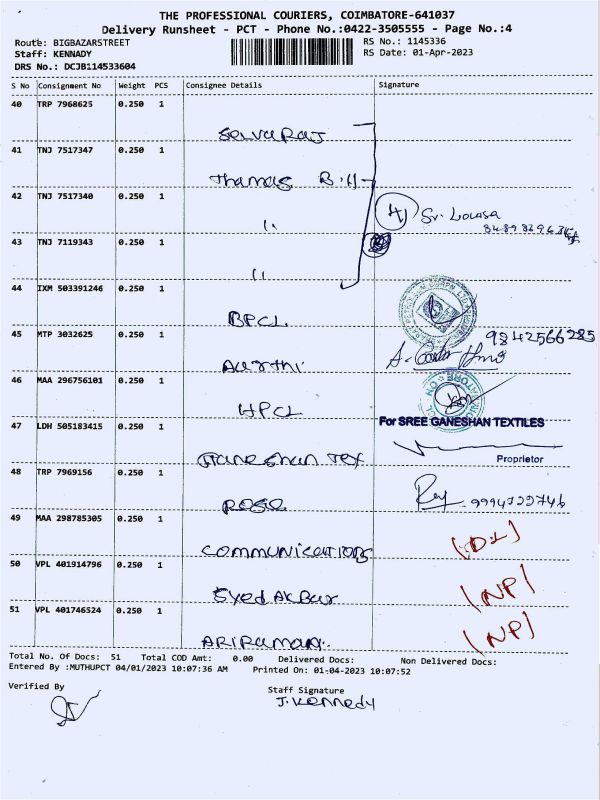 THE PROFESSIONAL COURIERS, COIMBATORE-641037
Delivery Runsheet - PCT - Phone No.:0422-3505555 - Page No.:4
Route: BIGBAZARSTREET RS No.: 1145336
Staff: KENNADY RS Date: 01-Apr-2023
DRS No.: DCJB114533604
S No Consignment No Weight PCS Consignee Details Signature
40 TRP 7968625 0.250 1
Selvaraj
41 TNJ 7517347 0.250 1
Thamas B.H
42 TNJ 7517340 0.250 1
4 Sr.
43 TNJ 7119343 0.250 1
44 IXM 503391246 0.250 1
BPCL
9842566285
45 MTP 3032625 0.250 1
Aarthi
46 MAA 296756101 0.250 1
HPCL
For SREE GANESHAN TEXTILES
47 LDH 505183415 0.250 1
Ganeshan Tex
Proprietor
48 TRP 7969156 0.250 1
Rose
49 MAA 298785305 0.250 1
Communications
(DL)
50 VPL 401914796 0.250 1
Syed Akbar
(NP)
51 VPL 401746524 0.250 1
Ariraman
(NP)
Total No. Of Docs: 51 Total COD Amt: 0.00 Delivered Docs: Non Delivered Docs:
Entered By :MUTHUPCT 04/01/2023 10:07:36 AM Printed On: 01-04-2023 10:07:52
Verified By Staff Signature
J. Kennedy